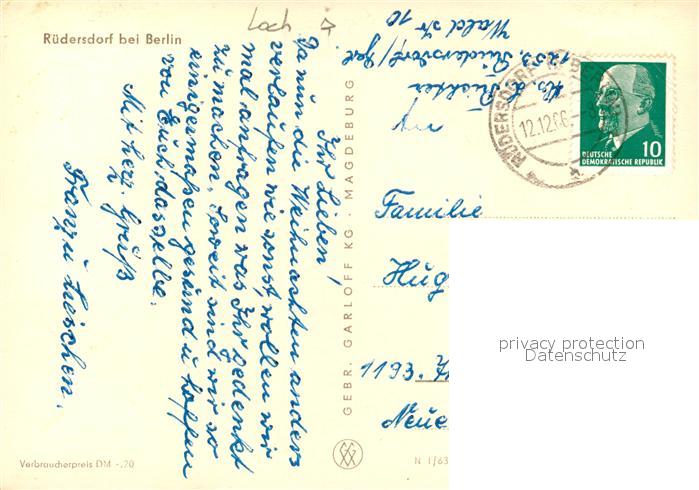 Rüdersdorf bei Berlin
Loch
Ihr Lieben!
Da nun die Weihnachten anders
verlaufen wie sonst, wollen wir
mal anfragen was Ihr gedenkt
zu machen. Soweit sind wir so
einigermaßen gesund u. hoffen
von Euch dasselbe.
Mit herz. Gruß
Franz u Lieschen.
Verbraucherpreis DM -.20
GEBR. GARLOFF KG · MAGDEBURG
N 1/63
Richter
1253. Rüdersdorf/
Wald str 10
RÜDERSDORF
12.12.66
10
DEUTSCHE
DEMOKRATISCHE REPUBLIK
An
Familie
Hug
1193.
Neue
privacy protection
Datenschutz